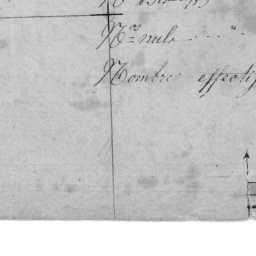 Nos nuls . . . "
Nombre effectif